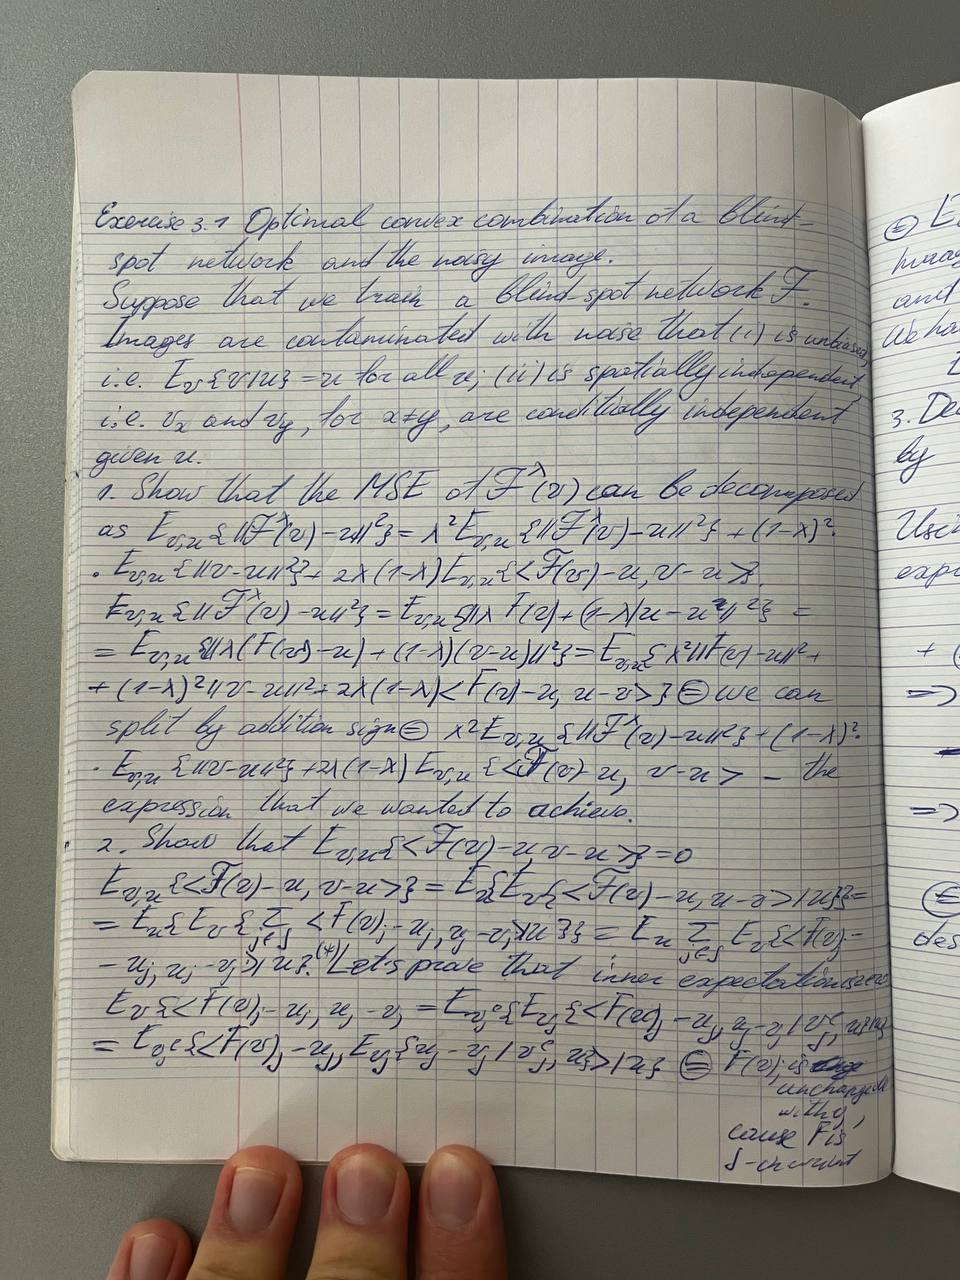 Exercise 3.1 Optimal convex combination of a blind-
spot network and the noisy image.
Suppose that we train a blind-spot network F.
Images are contaminated with noise that (i) is unbiased,
i.e. E_v{v|u} = u for all u; (ii) is spatially independent,
i.e. v_x and v_y, for x≠y, are conditially independent
given u.
1. Show that the MSE of F^λ(v) can be decomposed
as E_{v,u}{||F^λ(v)-u||²} = λ² E_{v,u}{||F^λ(v)-u||²} + (1-λ)²·
· E_{v,u}{||v-u||²} + 2λ(1-λ) E_{v,u}{<F(v)-u, v-u>}.
E_{v,u}{||F^λ(v)-u||²} = E_{v,u}{||λ F(v) + (1-λ)u - u||²} =
= E_{v,u}{||λ(F(v)-u) + (1-λ)(v-u)||²} = E_{v,u}{λ²||F(v)-u||² +
+ (1-λ)²||v-u||² + 2λ(1-λ)<F(v)-u, u-v>} ⊜ we can
split by addition sign ⊜ λ² E_{v,u}{||F^λ(v)-u||²} + (1-λ)²·
· E_{v,u}{||v-u||²} + 2λ(1-λ) E_{v,u}{<F(v)-u, v-u> - the
expression that we wanted to achieve.
2. Show that E_{v,u}{<F(v)-u, v-u>} = 0
E_{v,u}{<F(v)-u, v-u>} = E_u{E_v{<F(v)-u, u-v>|u}} =
= E_u{E_v{Σ_{j∈J} <F(v)_j - u_j, u_j - v_j>|u}} = E_u Σ_{j∈J} E_v{<F(v)_j -
- u_j, u_j - v_j>|u}. (*) Let's prove that inner expectation is zero
E_v{<F(v)_j - u_j, u_j - v_j = E_{v_j^c}{E_{v_j}{<F(v)_j - u_j, u_j - v_j|v_j^c, u}|u}
= E_{v_j^c}{<F(v)_j - u_j, E_{v_j}{u_j - v_j|v_j^c, u}>|u} ⊜ F(v)_j is
unchanged
with
cause F is
J-invariant
E
and
We ha
3. De
by
Usin
expr
+ (
=>
=>
⊜
des